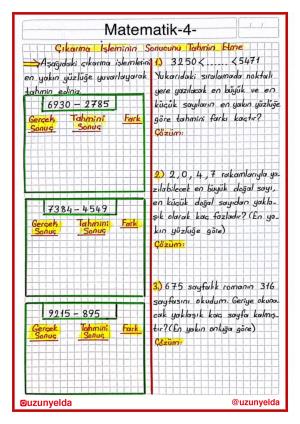 Matematik-4-
Çıkarma İşleminin Sonucunu Tahmin Etme
Aşağıdaki çıkarma işlemlerini
en yakın yüzlüğe yuvarlayarak
tahmin edin.
6930 - 2785
Gerçek Sonuç Tahmini Sonuç Fark
7384 - 4549
Gerçek Sonuç Tahmini Sonuç Fark
9215 - 895
Gerçek Sonuç Tahmini Sonuç Fark
1) 3250<......<5471
Yukarıdaki sıralamada noktalı
yere yazılacak en büyük ve en
küçük sayıların en yakın yüzlüğe
göre tahmini farkı kaçtır?
Çözüm:
2) 2, 0, 4, 7 rakamlarıyla ya-
zılabilecek en büyük doğal sayı,
en küçük doğal sayıdan yakla-
şık olarak kaç fazladır? (En ya-
kın yüzlüğe göre)
Çözüm:
3) 675 sayfalık romanın 316
sayfasını okudum. Geriye okuna-
cak yaklaşık kaç sayfa kalmış-
tır? (En yakın onluğa göre)
Çözüm:
@uzunyelda @uzunyelda